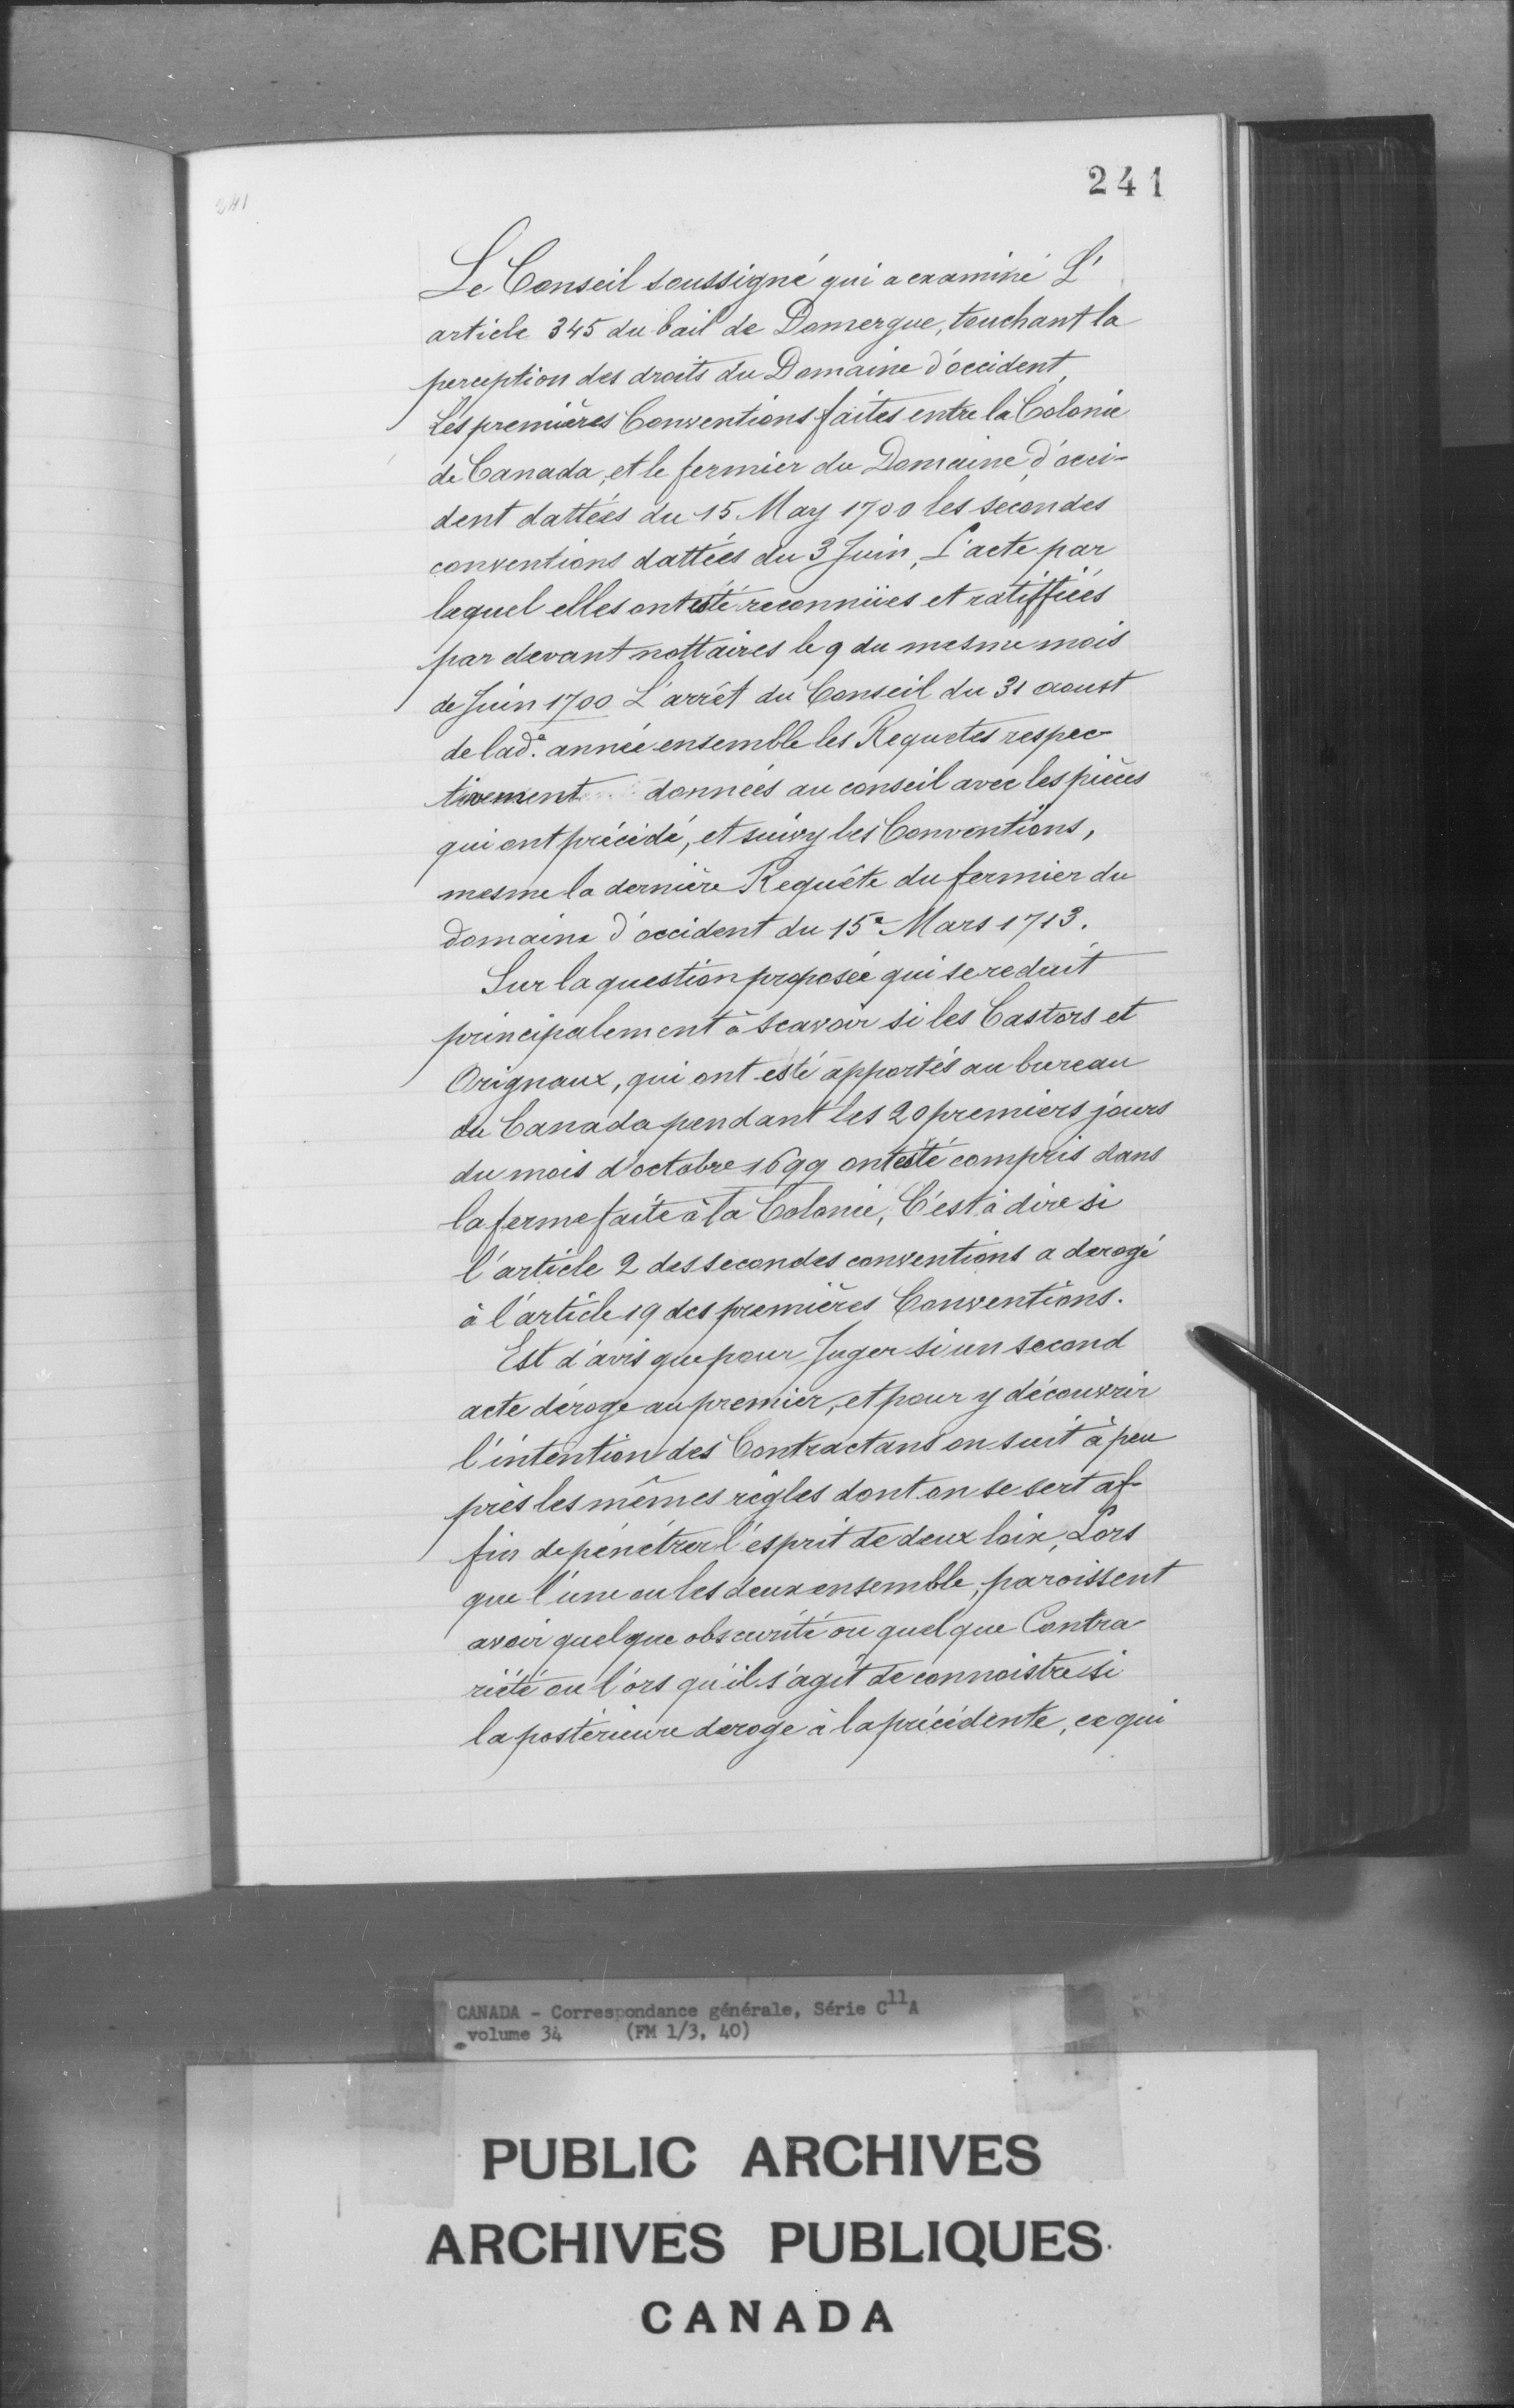 241
241
Le Conseil soussigné qui a examiné L'
article 345 du bail de Domergue, touchant la
perception des droits du Domaine d'occident,
Les premières Conventions faites entre la Colonie
de Canada, et le fermier du Domaine d'occi-
dent dattées du 15 May 1700 les secondes
conventions dattées du 3 Juin, L'acte par
lequel elles ont esté reconnües et ratiffiées
par devant nottaires le 9 du mesme mois
de Juin 1700 L'arrêt du Conseil du 31 aoust
de lade. année ensemble les Requetes respec-
tivement données au conseil avec les pièces
qui ont précédé, et suivy les Conventions,
mesme la dernière Requête du fermier du
domaine d'occident du 15e Mars 1713.
Sur la question proposée qui se reduit
principalement à scavoir si les Castors et
Orignaux, qui ont esté apportés au bureau
du Canada pendant les 20 premiers jours
du mois d'octobre 1699 ont esté compris dans
la ferme faite à la Colonie, C'est à dire si
l'article 2 des secondes conventions a derogé
à l'article 19 des premières Conventions.
Est d'avis que pour Juger si un second
acte déroge au premier, et pour y découvrir
l'intention des Contractans on suit à peu
près les mêmes règles dont on se sert af-
fin de pénétrer l'esprit de deux loix, Lors
que l'une ou les deux ensemble, paroissent
avoir quelque obscurité ou quelque Contra
riété ou l'ors qu'il s'agit de connoistre si
la postérieure deroge à la précédente, ce qui
CANADA - Correspondance générale, Série C11A
volume 34 (FM 1/3, 40)
PUBLIC ARCHIVES
ARCHIVES PUBLIQUES
CANADA